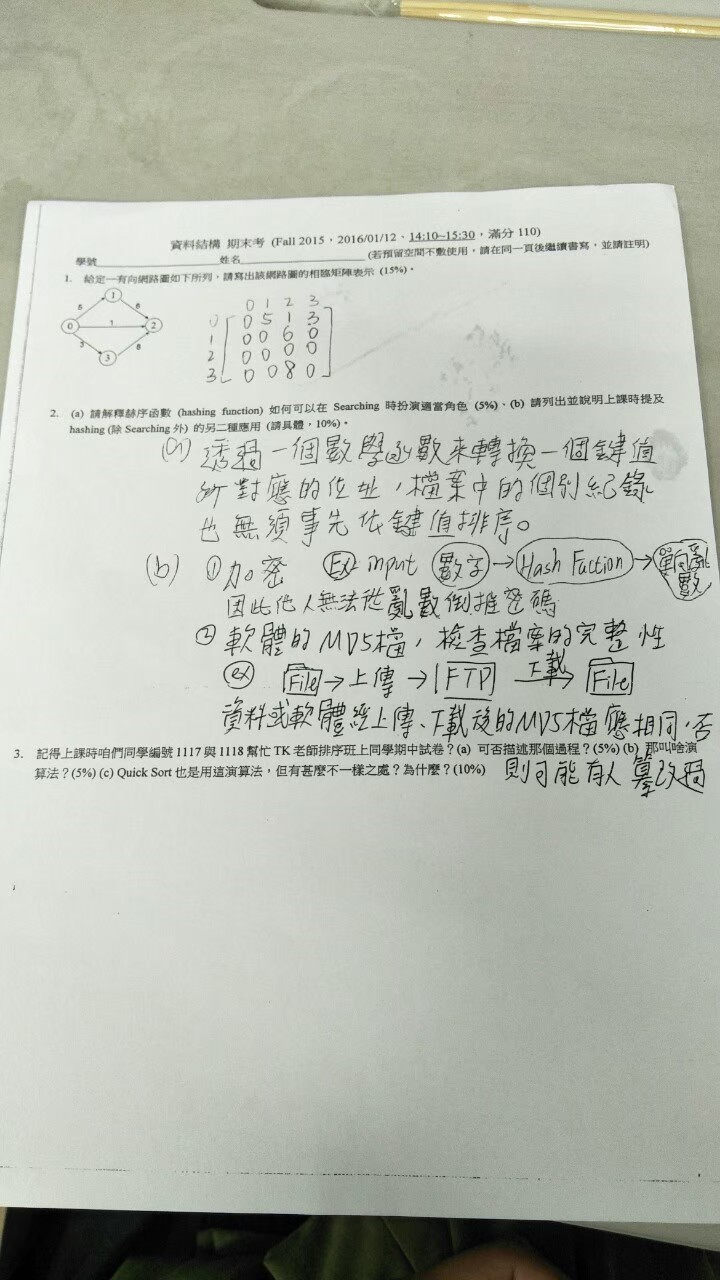 資料結構 期末考 (Fall 2015，2016/01/12、14:10~15:30，滿分 110)
學號 姓名 (若預留空間不敷使用，請在同一頁後繼續書寫，並請註明)
1. 給定一有向網路圖如下所列，請寫出該網路圖的相臨矩陣表示 (15%)。
1
6
0 1 2
3 8
3
0 1 2 3
0 0 5 1 3
1 0 0 6 0
2 0 0 0 0
3 0 0 8 0
2. (a) 請解釋赫序函數 (hashing function) 如何可以在 Searching 時扮演適當角色 (5%)、(b) 請列出並說明上課時提及
hashing (除 Searching 外) 的另二種應用 (請具體，10%)。
(a) 透過一個數學函數來轉換一個鍵值
所對應的位址，檔案中的個別紀錄
也無須事先依鍵值排序。
(b) ① 加密 Ex input 數字→Hash Fuction→單向亂數
因此他人無法從亂數倒推密碼
② 軟體的MD5檔，檢查檔案的完整性
ex File→上傳→FTP 下載→File
資料或軟體經上傳、下載後的MD5檔應相同，否
3. 記得上課時咱們同學編號 1117 與 1118 幫忙 TK 老師排序班上同學期中試卷？(a) 可否描述那個過程？(5%) (b) 那叫啥演
算法？(5%) (c) Quick Sort 也是用這演算法，但有甚麼不一樣之處？為什麼？(10%)
則可能有人篡改過